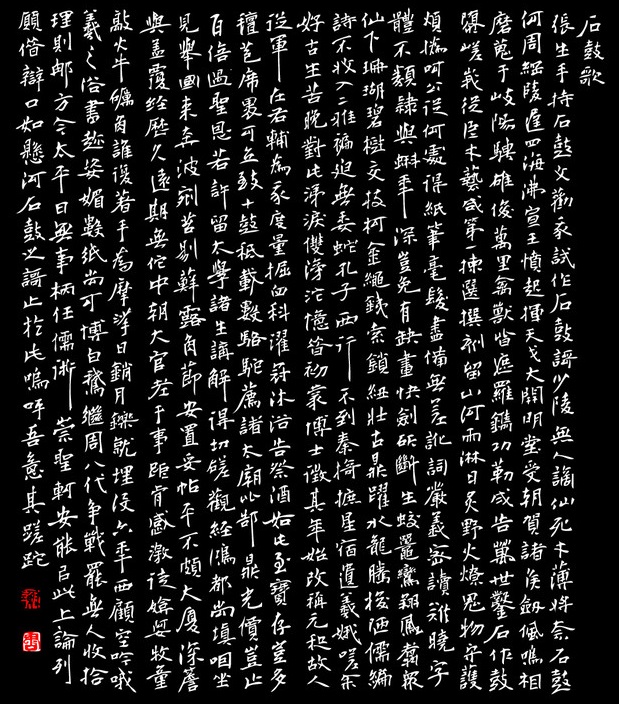 石鼓歌
張生手持石鼓文勸我試作石鼓謌少陵無人謫仙死才薄將奈石鼓
何周綱陵遲四海沸宣王憤起揮天戈大開明堂受朝賀諸侯劍佩鳴相
磨蒐于岐陽騁雄俊萬里禽獸皆遮羅鐫功勒成告萬世鑿石作鼓
隳嵯峨從臣才藝咸第一揀選撰刻留山河雨淋日炙野火燎鬼物守護
煩撝呵公從何處得紙筆毫髮盡備無差訛詞嚴義密讀難曉字
體不類隸與蝌年深豈免有缺畫快劍斫斷生蛟鼉鸞翔鳳翥眾
仙下珊瑚碧樹交枝柯金繩鐵索鎖紐壯古鼎躍水龍騰梭陋儒編
詩不收入二雅褊迫無委蛇孔子西行不到秦掎摭星宿遺羲娥嗟余
好古生苦晚對此涕淚雙滂沱憶昔初蒙博士徵其年始改稱元和故人
從軍在右輔為我度量掘臼科濯冠沐浴告祭酒如此至寶存豈多
氈苞席裹可立致十鼓祗載數駱駝薦諸太廟比郜鼎光價豈止
百倍過聖恩若許留太學諸生講解得切磋觀經鴻都尚填咽坐
見舉國來奔波剜苔剔蘚露角節安置妥帖平不頗大廈深簷
與蓋覆經歷久遠期無佗中朝大官老于事詎肯感激徒媕婀牧童
敲火牛礪角誰復著手為摩挲日銷月鑠就埋沒六年西顧空吟哦
羲之俗書趁姿媚數紙尚可博白鵝繼周八代爭戰罷無人收拾
理則那方今太平日無事柄任儒術崇聖軻安能以此上論列
願借辯口如懸河石鼓之謌止於此嗚呼吾意其蹉跎